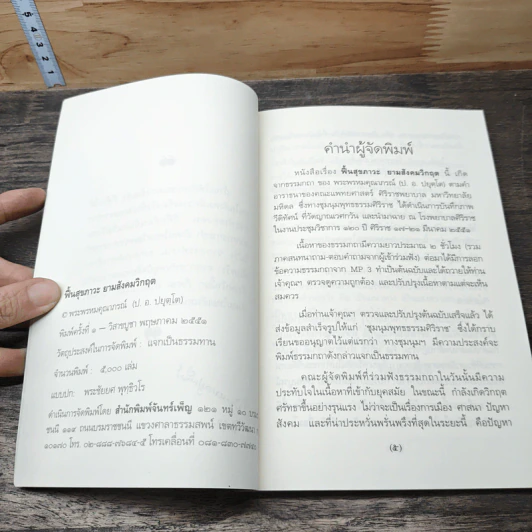 ฟื้นสุขภาวะ ยามสังคมวิกฤต
© พระพรหมคุณาภรณ์ (ป. อ. ปยุตฺโต)
พิมพ์ครั้งที่ ๑ – วิสาขบูชา พฤษภาคม ๒๕๕๑
วัตถุประสงค์ในการจัดพิมพ์ : แจกเป็นธรรมทาน
จำนวนพิมพ์ : ๕,๐๐๐ เล่ม
แบบปก : พระชัยยศ พุทฺธิวโร
ดำเนินการจัดพิมพ์โดย สำนักพิมพ์จันทร์เพ็ญ ๑๒๑ หมู่ ๑๐
ชนนี ๑๑๙ ถนนบรมราชชนนี แขวงศาลาธรรมสพน์ เขตทวีวัฒนา
๑๐๑๗๐ โทร. ๐๒-๘๘๘-๗๖๘๔-๕ โทรเคลื่อนที่ ๐๘๑-๘๓๐-๗๗๓
คำนำผู้จัดพิมพ์
หนังสือเรื่อง ฟื้นสุขภาวะ ยามสังคมวิกฤต นี้ เกิด
จากธรรมกถา ของ พระพรหมคุณาภรณ์ (ป. อ. ปยุตฺโต) ตามคำ
อาราธนาของคณะแพทยศาสตร์ ศิริราชพยาบาล มหาวิทยาลัย
มหิดล ซึ่งทางชมรมพุทธธรรมศิริราช ได้ดำเนินการบันทึกภาพ
วีดิทัศน์ ที่วัดญาณเวศกวัน และนำมาฉาย ณ โรงพยาบาลศิริราช
ในงานประชุมวิชาการ ๑๒๐ ปี ศิริราช ๑๗-๒๑ มีนาคม ๒๕๕๑
เนื้อหาของธรรมกถามีความยาวประมาณ ๒ ชั่วโมง (รวม
ภาคสนทนาถาม-ตอบคำถามจากผู้เข้าร่วมฟัง) ต่อมาได้มีการลอก
ข้อความธรรมกถาจาก MP 3. ทำเป็นต้นฉบับและได้ถวายให้ท่าน
เจ้าคุณฯ ตรวจดูความถูกต้อง และปรับปรุงเนื้อหาตามแต่จะเห็น
สมควร
เมื่อท่านเจ้าคุณฯ ตรวจและปรับปรุงต้นฉบับเสร็จแล้ว ได้
ส่งข้อมูลสำเร็จรูปให้แก่ ชุมนุมพุทธธรรมศิริราช ซึ่งได้กราบ
เรียนขออนุญาตไว้แต่แรกว่า ทางชุมนุมฯ มีความประสงค์จะ
พิมพ์ธรรมกถาดังกล่าวแจกเป็นธรรมทาน
คณะผู้จัดพิมพ์ที่ร่วมฟังธรรมกถาในวันนั้นมีความ
ประทับใจในเนื้อหาที่เข้ากับยุคสมัย ในขณะนี้ กำลังเกิดวิกฤต
ศรัทธาขึ้นอย่างรุนแรง ไม่ว่าจะเป็นเรื่องการเมือง ศาสนา ปัญหา
สังคม และที่น่าประหวั่นพรั่นพรึงที่สุดในระยะนี้ คือปัญหา
(๕)